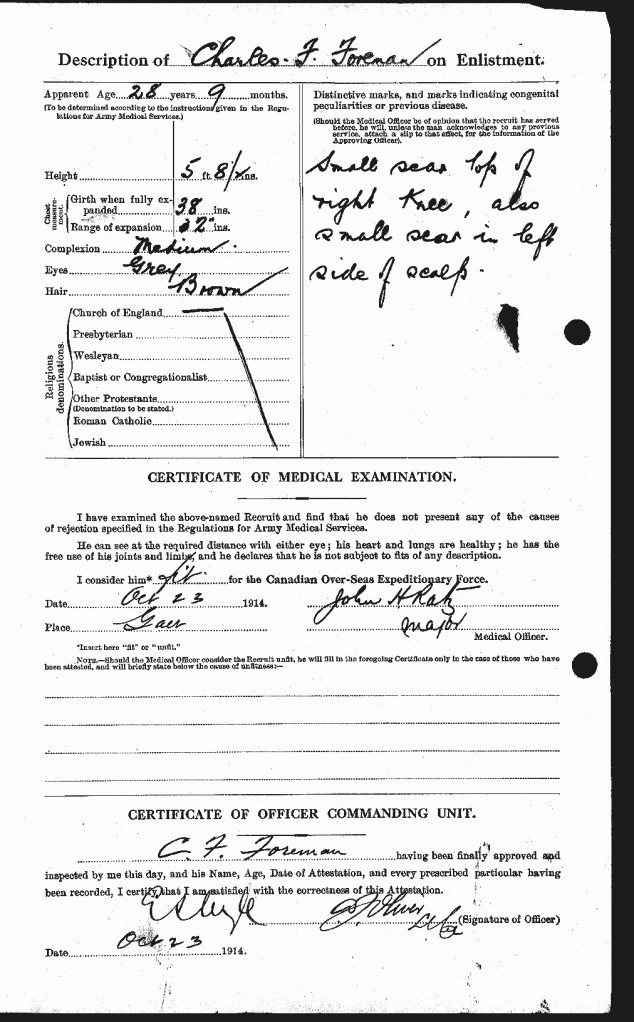 Description of Charles. F. Foreman on Enlistment.
Apparent Age 28 years 9 months.
(To be determined according to the instructions given in the Regulations for Army Medical Services.)
Height 5 ft. 8 ½ ins.
Chest measurement.
Girth when fully expanded 38 ins.
Range of expansion 2" ins.
Complexion Medium.
Eyes Grey
Hair Brown
Religious denominations.
Church of England
Presbyterian
Wesleyan
Baptist or Congregationalist
Other Protestants
(Denomination to be stated.)
Roman Catholic
Jewish
Distinctive marks, and marks indicating congenital
peculiarities or previous disease.
(Should the Medical Officer be of opinion that the recruit has served
before, he will, unless the man acknowledges to any previous
service, attach a slip to that effect, for the information of the
Approving Officer).
Small scar top of
right Knee, also
small scar in left
side of scalp.
CERTIFICATE OF MEDICAL EXAMINATION.
I have examined the above-named Recruit and find that he does not present any of the causes
of rejection specified in the Regulations for Army Medical Services.
He can see at the required distance with either eye; his heart and lungs are healthy; he has the
free use of his joints and limbs, and he declares that he is not subject to fits of any description.
I consider him* fit for the Canadian Over-Seas Expeditionary Force.
Date Oct 23 1914.
John H Ratz
Place
Major
Medical Officer.
*Insert here "fit" or "unfit."
NOTE.—Should the Medical Officer consider the Recruit unfit, he will fill in the foregoing Certificate only in the case of those who have
been attested, and will briefly state below the cause of unfitness:—
CERTIFICATE OF OFFICER COMMANDING UNIT.
C. F. Foreman having been finally approved and
inspected by me this day, and his Name, Age, Date of Attestation, and every prescribed particular having
been recorded, I certify that I am satisfied with the correctness of this Attestation.
(Signature of Officer)
Date Oct 23 1914.